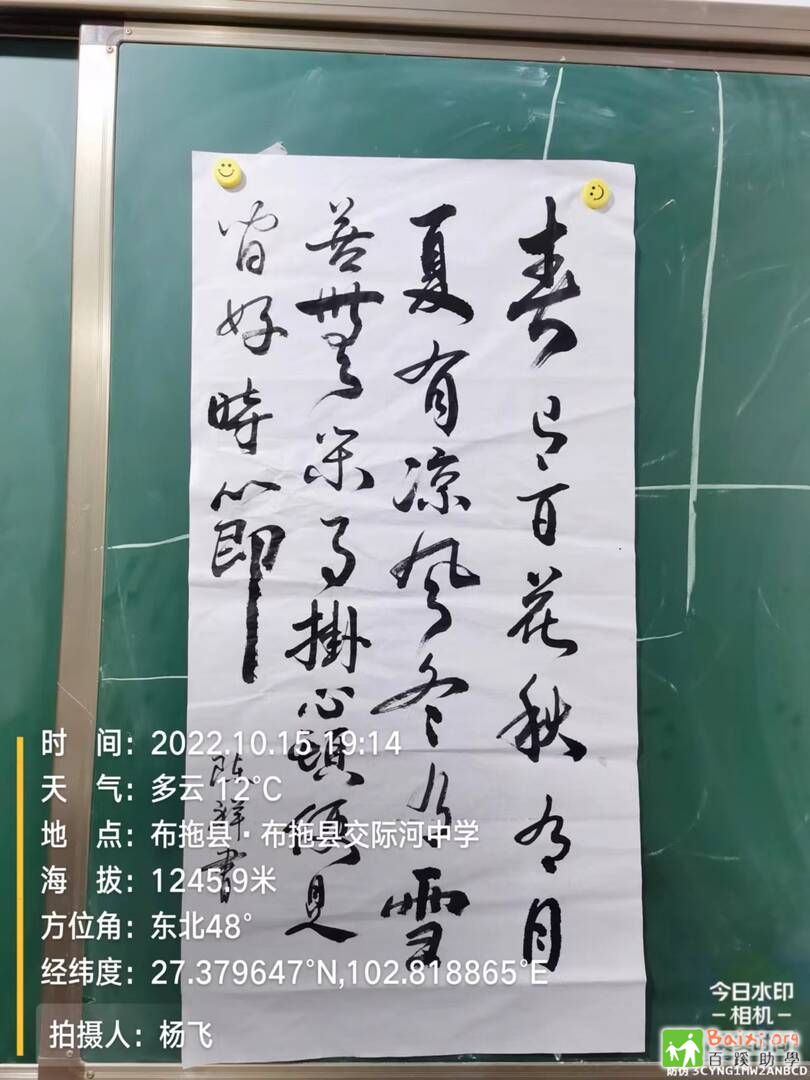 春有百花秋有月
夏有凉風冬有雪
若無闲事掛心頭便是
間好時節
陈祥書
时 间：2022.10.15 19:14
天 气：多云 12°C
地 点：布拖县·布拖县交际河中学
海 拔：1245.9米
方位角：东北48°
经纬度：27.379647°N,102.818865°E
拍摄人：杨飞
今日水印
-相机-
Baixi.org
百蹊助學
防伪 3CYNG1MW2ANBCD